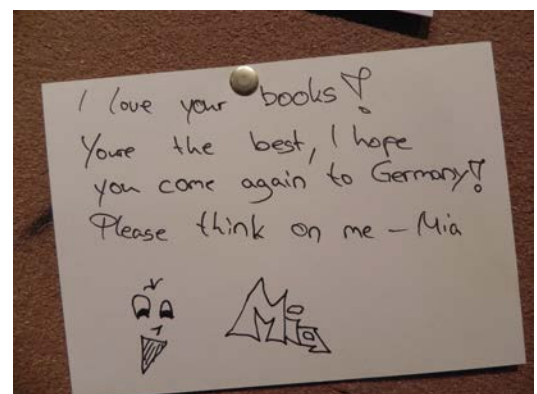 I love your books!
Youre the best, I hope
you come again to Germany!
Please think on me – Mia
Mia